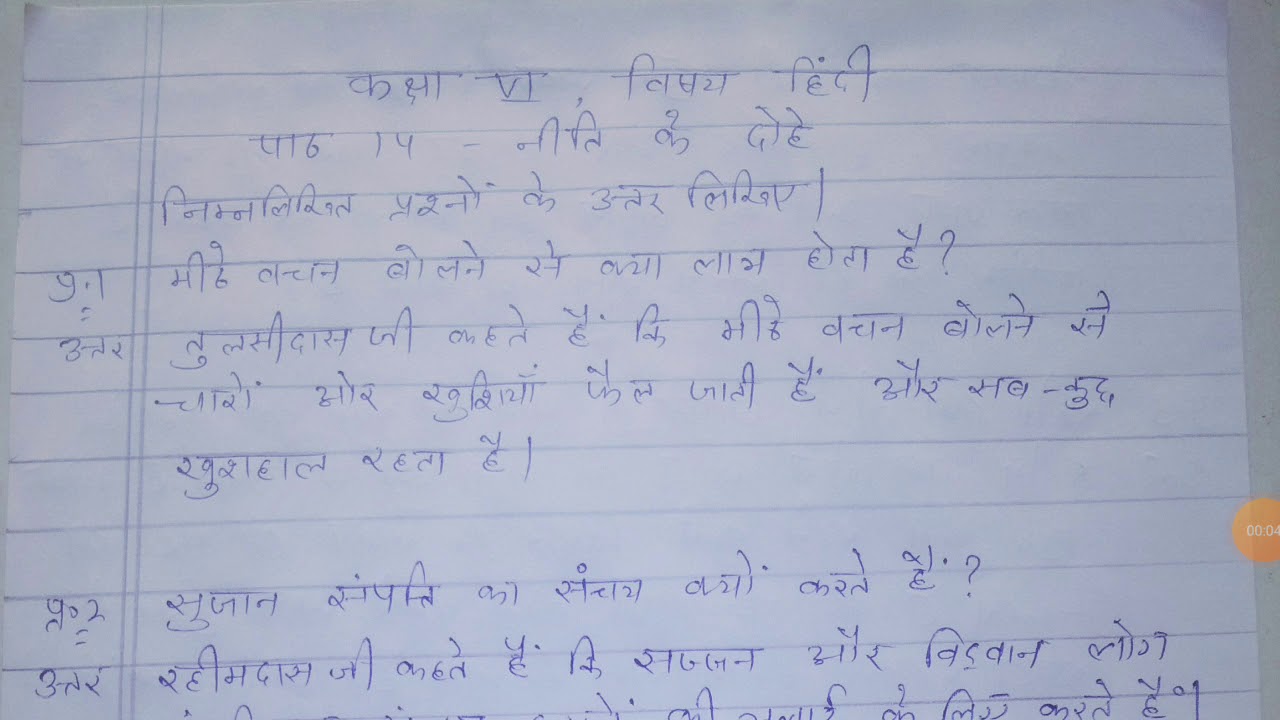 कक्षा VI, विषय हिंदी
पाठ 14 - नीति के दोहे
निम्नलिखित प्रश्नों के उत्तर लिखिए।
प्र.1 मीठे वचन बोलने से क्या लाभ होता है?
उत्तर तुलसीदास जी कहते हैं कि मीठे वचन बोलने से
चारों ओर खुशियाँ फैल जाती हैं और सब-कुछ
खुशहाल रहता है।
00:04
प्र॰2 सुजान संपत्ति का संचय क्यों करते हैं?
उत्तर रहीमदास जी कहते हैं कि सज्जन और विद्वान लोग
की भलाई के लिए करते है।